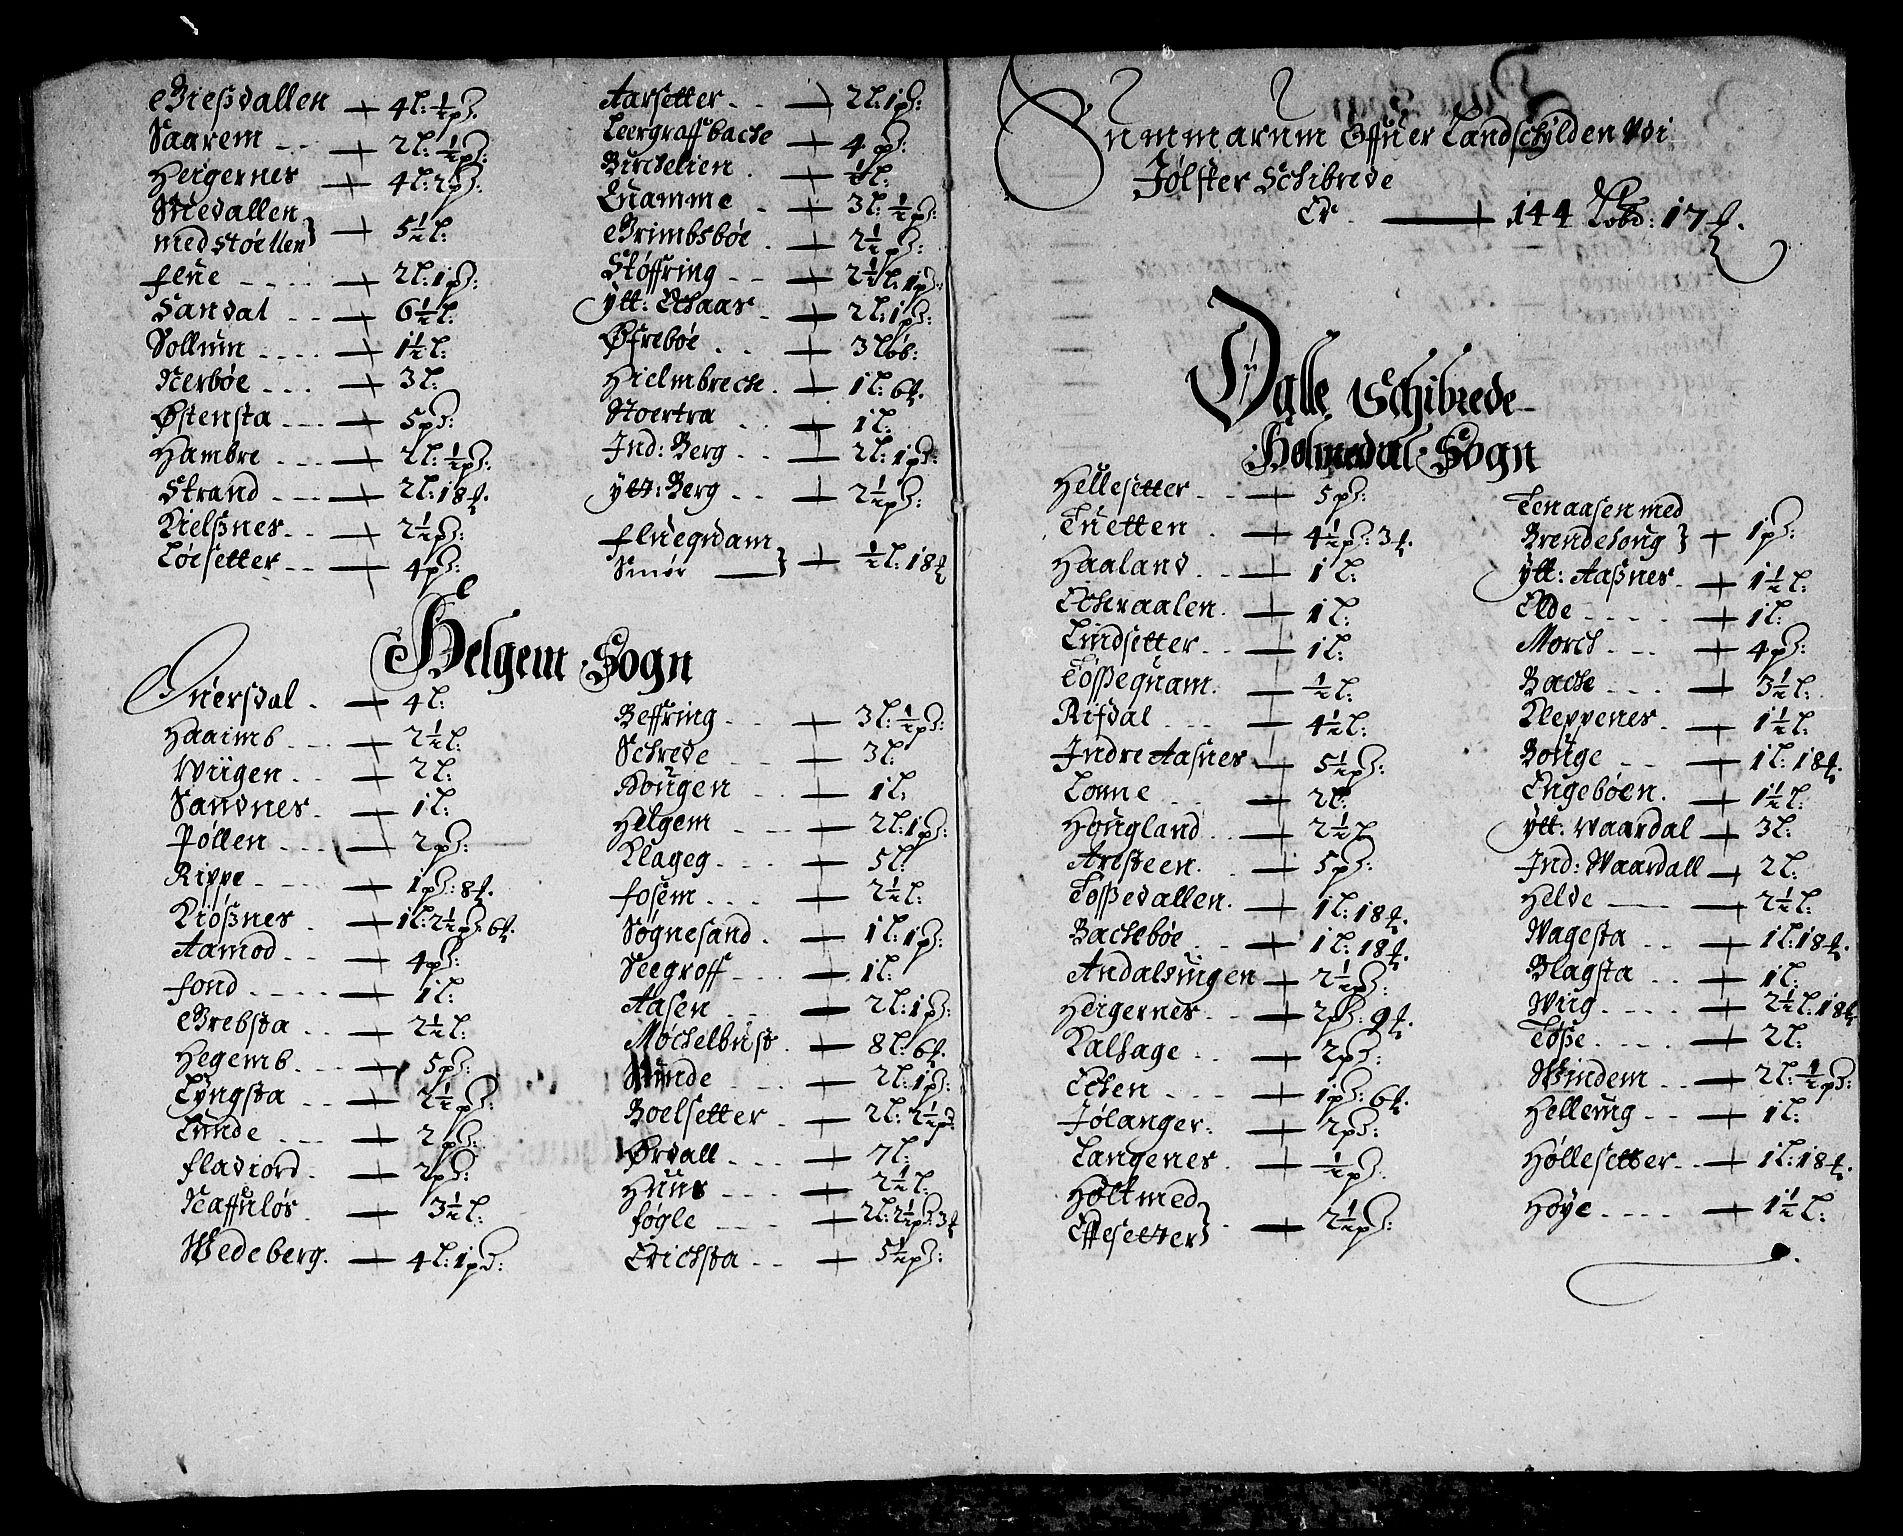 Giesdallen + 4 l: ½ pd:
Saarem + 2 l: ½ pd:
Heigernes + 4 l: 2 pd:
Medallen
med Støellen } + 5½ l:
flue + 2 l: 1 pd:
Sandal + 6½ l:
Sollum + 1½ l:
Nerbøe + 3 l:
Østensta + 5 pd:
Hambre + 2 l: ½ pd:
Strand + 2 l: 18 ₰.
Kielsnes + 2½ pd:
Løesetter + 4 pd:
Aarsetter + 2 l: 1 pd:
Leergraffbache + 4 pd:
Birchelien + ½ l:
Quamme + 3 l: ½ pd:
Grimbsbøe + 2½ pd:
Støffring + 2½ l: 1 pd:
ytt: Echaas + 2 l: 1 pd:
Øfrebøe + 3 løb:
Hielmbrech + 1 l: 6 ₰.
Stoertra + 1 l:
Ind: Berg + 2 l: 1 pd:
ytt: Berg + 2½ pd:
fluequam
Smør } + ½ l: 18 ₰
Helgem Sogn
Ouersdal + 4 l:
Haaimb + 2½ l:
Wiigen + 2 l:
Sandnes + 1 l:
Pøllen + 2 pd:
Rippe + 1 pd: 8 ₰.
Kiøsnes + 1 l: 2½ pd: 6 ₰.
Aamod + 4 pd:
fond + 1 l:
Grebsta + 2½ l:
Hegemb + 5 pd:
Lyngsta + 2½ pd:
Lunde + 2 pd:
fladiord + 2 pd:
Naffuløs + 3½ l:
Wedeberg + 4 l: 1 pd:
Beffring + 3 l: ½ pd:
Schrede + 3 l:
Hougen + 1 l:
Helgem + 2 l: 1 pd:
Klageg + 5 l:
fosem + 2½ l:
Søgnesand + 1 l: 1 pd:
Seegroff + 1 l:
Aasen + 2 l: 1 pd:
Møchelbust + 8 l: 6 ₰.
Sunde + 2 l: 1 pd:
Boelsetter + 2 l: 2½ pd
Ørdall + 7 l:
Huus + 2½ l:
føgle + 2 l: 2½ pd: 3 ₰
Erichsta + 5½ pd:
Summarum Offuer Landschylden Vdi
Jølster Schibrede
Er + 144 Løbd: 17 ₰.
Dalle Schibrede
Holmedal Sogn
Hellesetter + 5 pd:
Tuetten + 4½ pd: 3 ₰.
Haaland + 1 l:
Echraalen + 1 l:
Lindsetter + 1 l:
Tossequam + ½ l:
Rifdal + 4½ l:
Indre Aasnes + 5½ pd:
Lonne + 2 l:
Hougland + 2½ l
Arosteen + 5 pd:
Tossedallen + 1 l: 18 ₰.
Bachebøe + 1 l: 18 ₰.
Andalsuigen + 2½ pd:
Heigernes + 2 pd: 9 ₰.
Kalhage + 2 pd:
Echen + 1 pd: 6 ₰.
Jølanger + 2 pd:
Langenes + ½ pd:
Holt med
Effesetter } + 2½ pd:
Tenaasen med
Brendehoug } + 1 pd:
ytt: Aasnes + 1½ l:
Elde + 1 l:
Morch + 4 pd:
Bache + 3½ l:
Kleppenes + 1½ l:
Bouge + 1 l: 18 ₰.
Engebøen + 1½ l:
ytt: Waardal + 3 l:
Ind: Waardall + 2 l:
Helde + 2½ l:
Wagesta + 1 l: 18 ₰.
Blagsta + 1 l:
Wiig + 2½ l: 18 ₰
Tøsse + 2 l:
Windem + 2 l: ½ pd:
Helleuig + 1 l:
Høllesetter + 1 l: 18 ₰.
Høye + 1½ l: